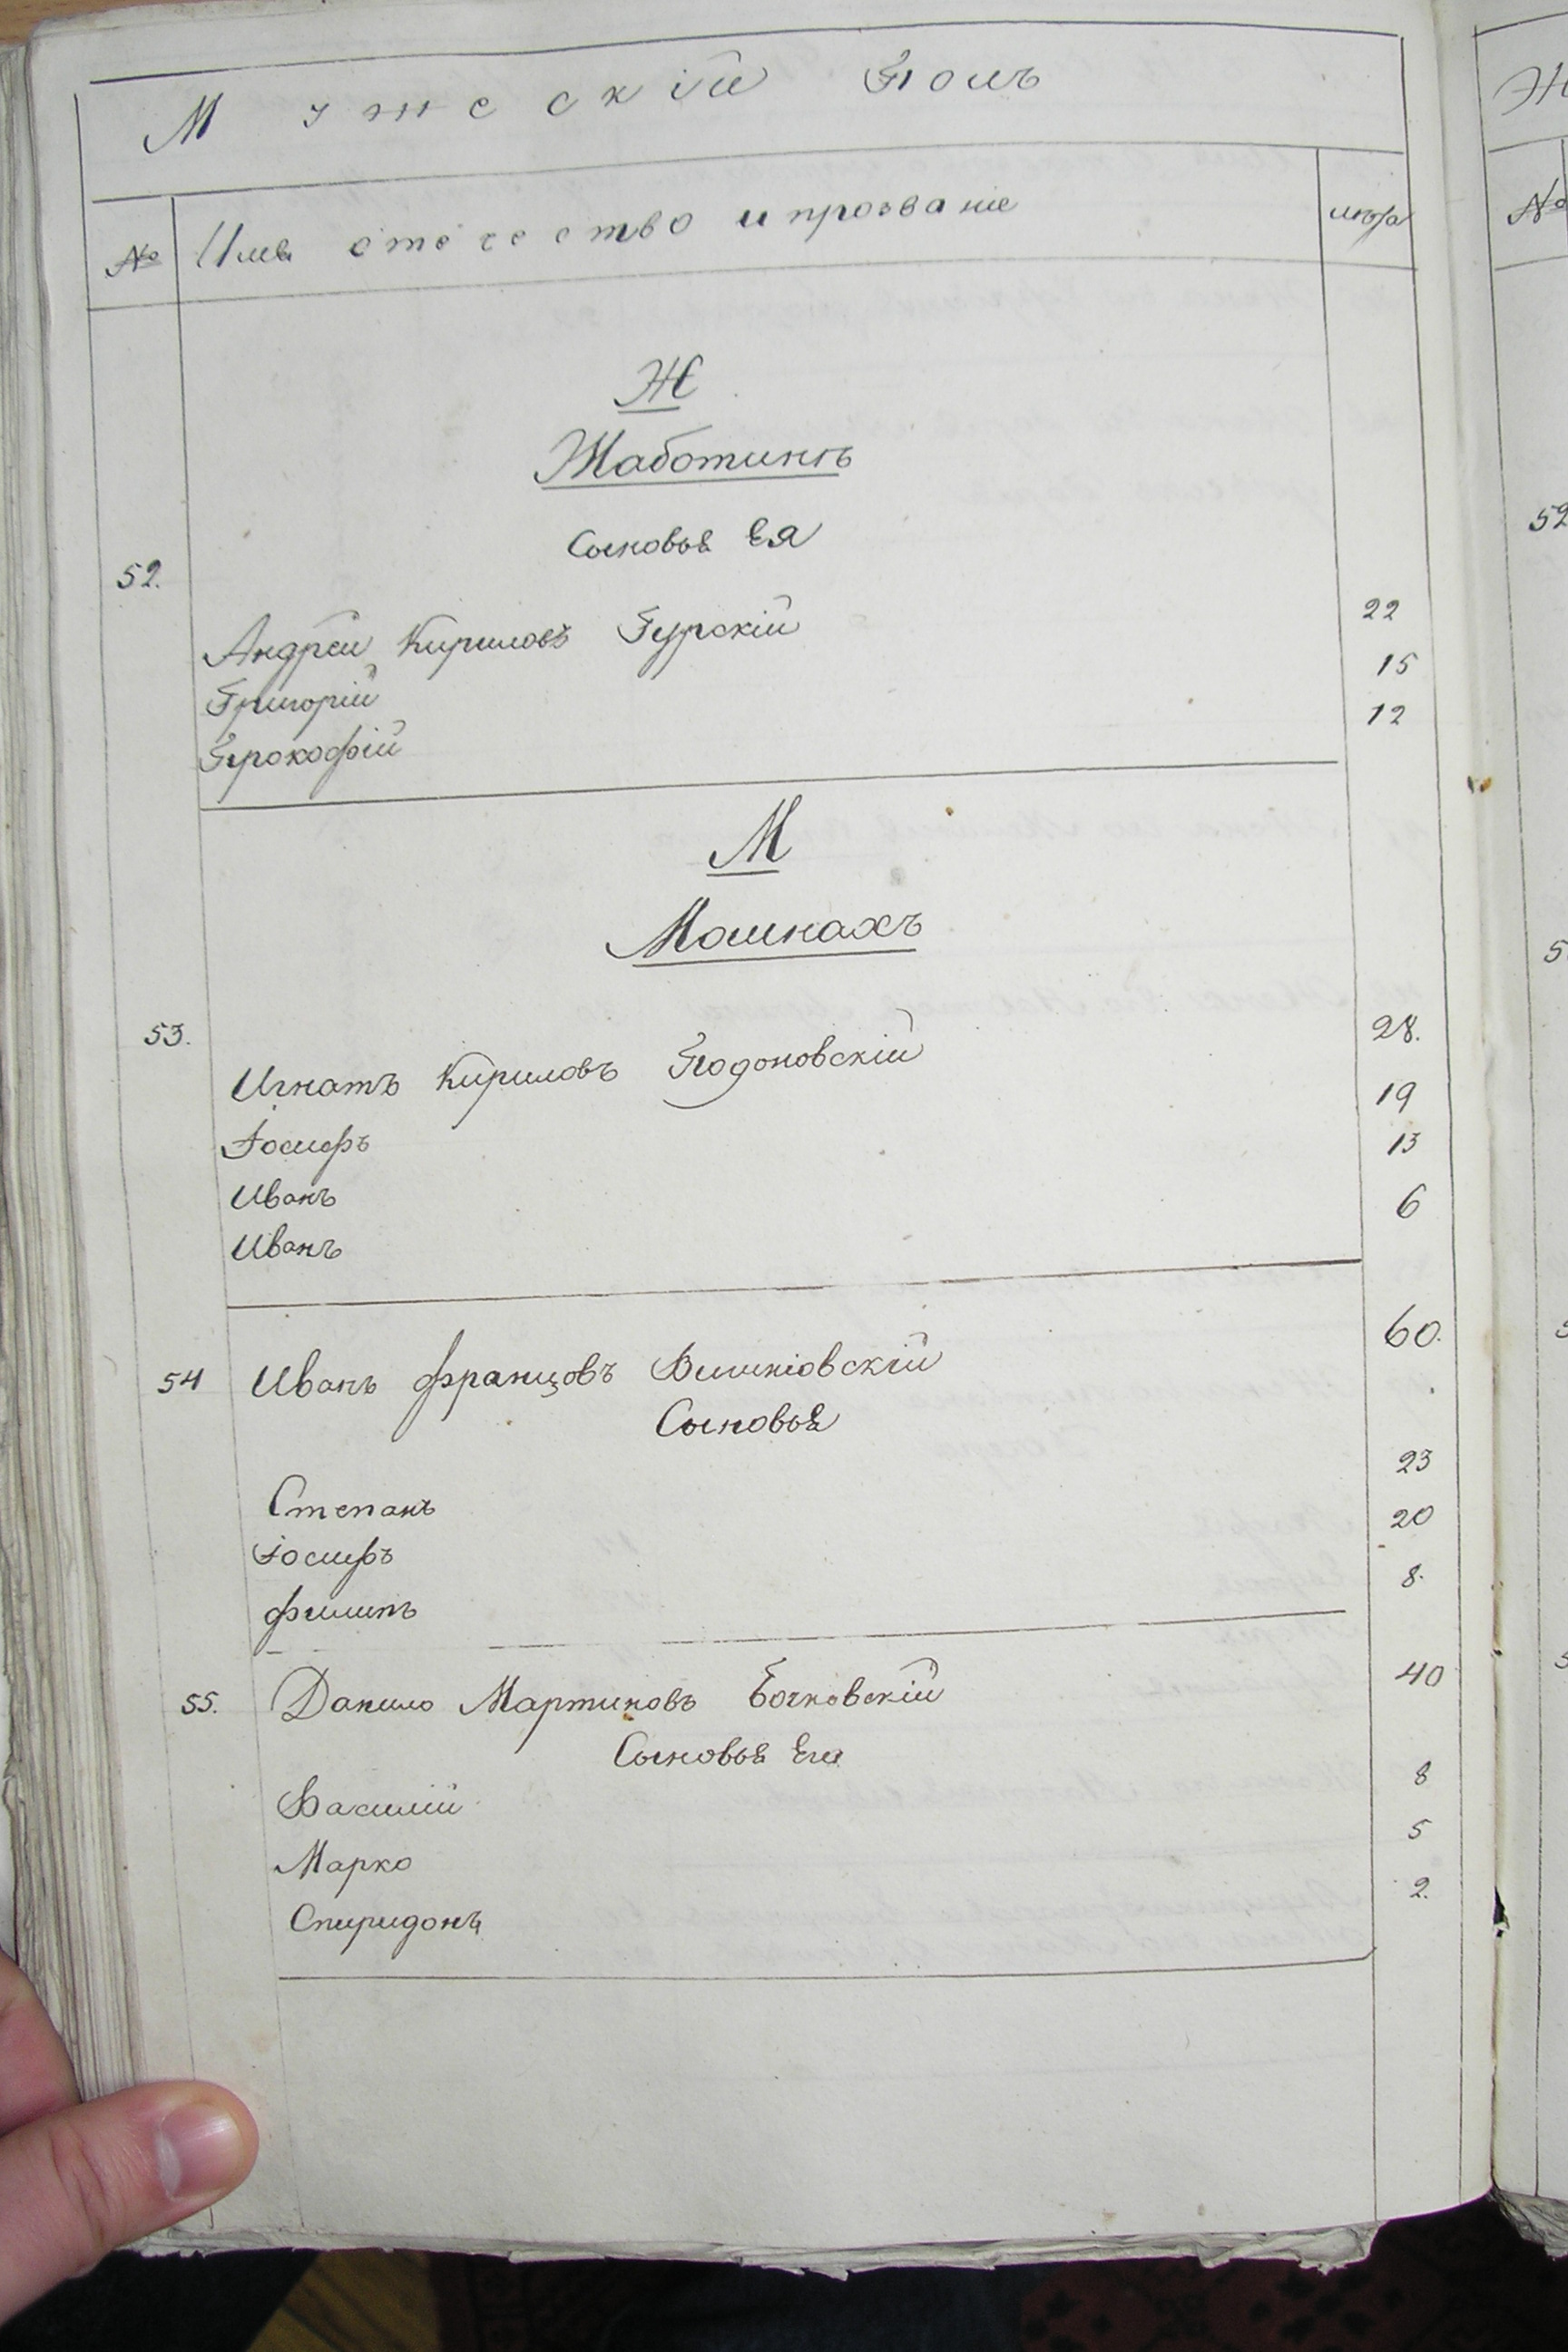 Мужескій Полъ
№ Имя отечество и прозваніе лѣта
Ж
Жаботинъ
Сыновья Ея
52.
Андрей Кириловъ Гурскій 22
Григорій 15
Прокофій 12
М
Мошнахъ
53.
Игнатъ Кириловъ Подоновскій 28.
Іосифъ 19
Иванъ 13
Иванъ 6
54 Иванъ Францовъ 60.
Сыновья
Степанъ 23
Іосифъ 20
Филипъ 8.
55. Данило Мартиновъ Бочковскій 40
Сыновья Его
Василій 8
Марко 5
Спиридонъ 2.
Ж
№
52
5
5
5